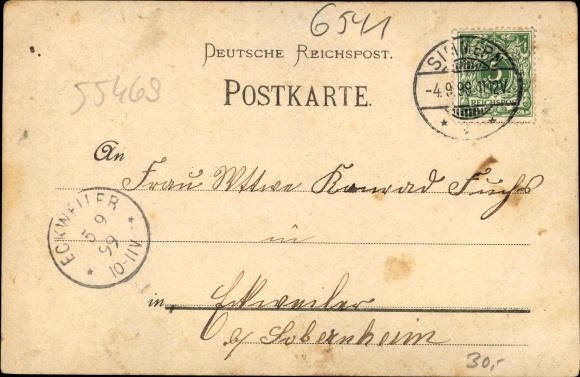 6541
DEUTSCHE REICHSPOST.
55469
POSTKARTE.
SIMMERN
-4.9.99.11-12V.
5
REICHSPOST
An
Frau Wttwe Konrad Fuchs
in
ECKWEILER
5 9
99
VII-10
in Eckweiler
b/ Sobernheim
30,-